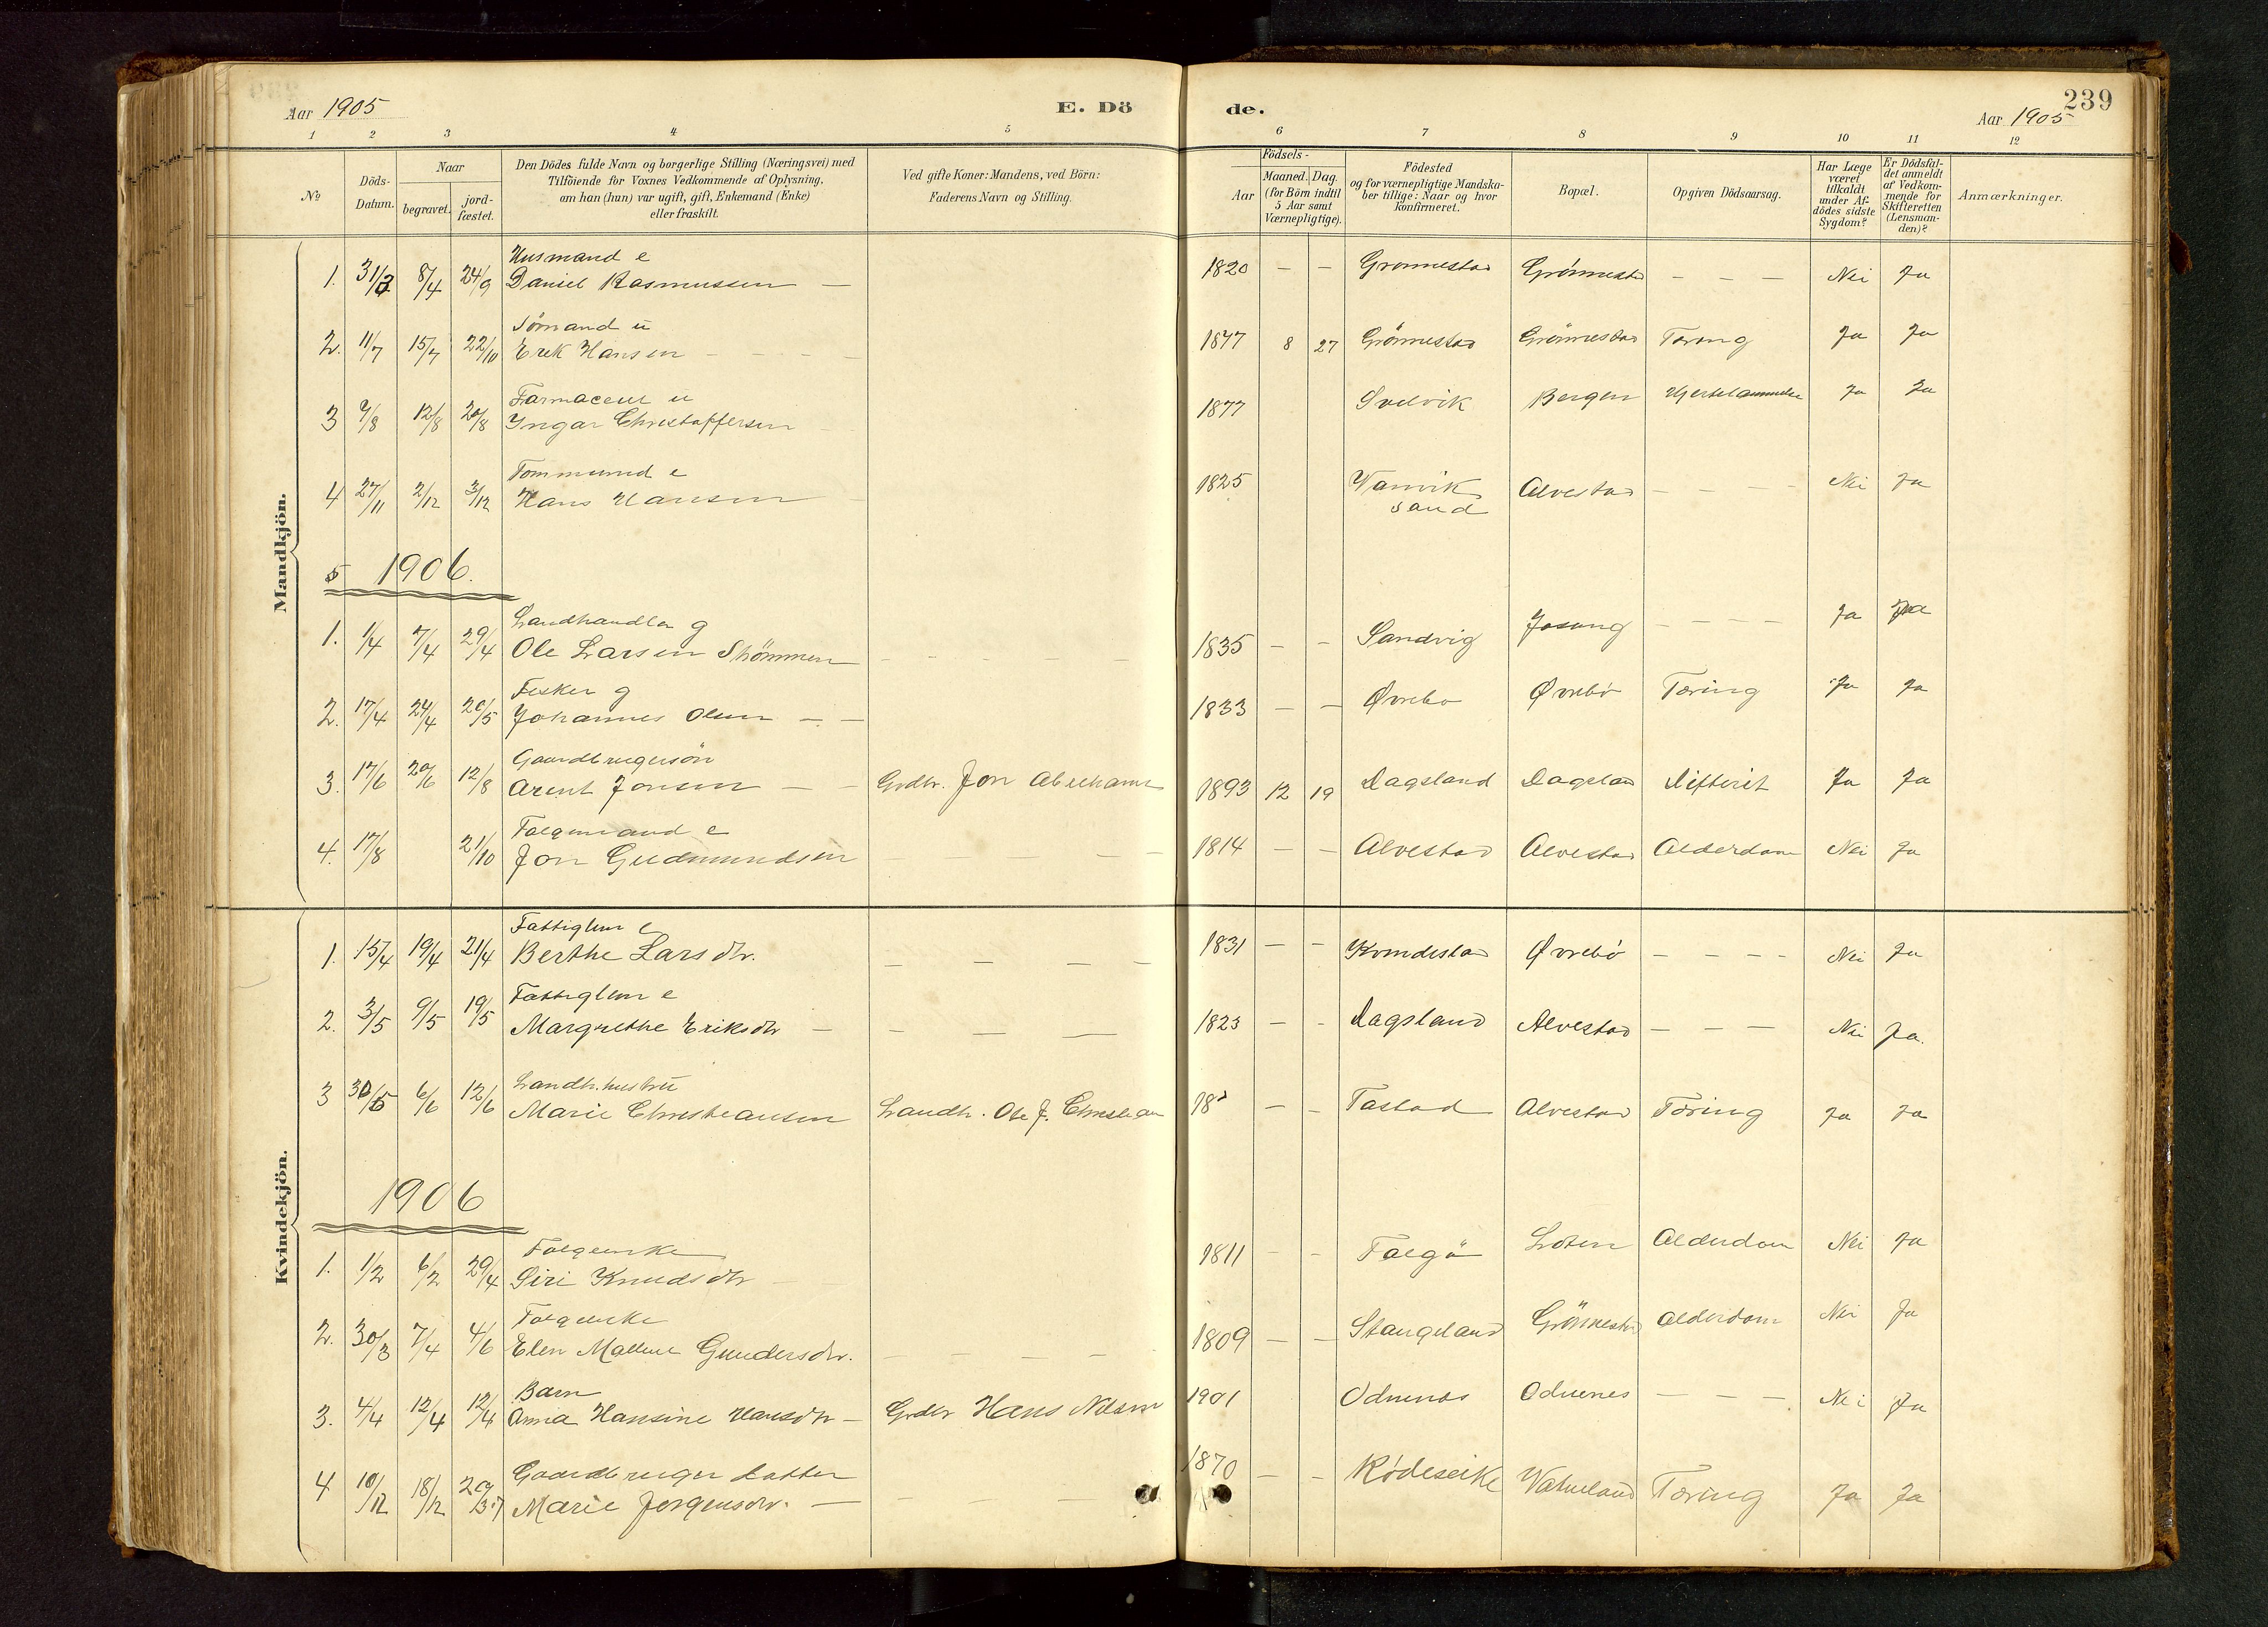 Aar 1905 E. Dö de. Aar 1905 239
1 2 3 4 5 6 7 8 9 10 11 12
No
Döds-Datum.
Naar
begravet.
jord-fæstet.
Den Dödes fulde Navn og borgerlige Stilling (Næringsvei) med
Tilföiende for Voxnes Vedkommende af Oplysning,
om han (hun) var ugift, gift, Enkemand (Enke)
eller fraskilt.
Ved gifte Koner: Mandens, ved Börn:
Faderens Navn og Stilling.
Födsels-
Aar
Maaned. Dag.
(for Börn indtil
5 Aar samt
Værnepligtige).
Födested
og for værnepligtige Mandska-
ber tillige: Naar og hvor
konfirmeret.
Bopæl.
Opgiven Dödsaarsag.
Har Læge
været
tilkaldt
under Af-
dödes sidste
Sygdom?
Er Dödsfal-
det anmeldt
af Vedkom-
mende for
Skifteretten
(Lensman-
den)?
Anmærkninger.
Mandkjön.
Husmand e
1. 31/3 8/4 24/9 Daniel Rasmussen — 1820 — — Grönnestad Grönnestad — — — Nei Ja
Sömand u
2. 11/7 15/7 22/10 Erik Hansen — — 1877 8 27 Grönnestad Grönnestad Tæring Ja Ja
Farmaceut u
3 9/8 12/8 20/8 Yngar Christoffersen 1877 Bergen Ja Ja
Tommand e
4 27/11 2/12 3/12 Hans Hansen 1825 Vanvik Alvestad — — — Nei Ja
Sand
5 1906.
Landhandler g
1. 1/4 7/4 29/4 Ole Larsen Strömmen — — — — 1835 — — Sandvig Josung — — — — Ja Ja
Fisker g
2. 17/4 24/4 20/5 Johannes Olsen — — 1833 — — Øvrebø Øvrebö Tæring Ja Ja
Gaardbrugersön
3. 17/6 20/6 12/8 Arent Jonsen — — Grdbr. Jon Abrahams 1893 12 19 Dagsland Dagsland Difterit Ja Ja
Folgemand e
4. 17/8 21/10 Jon Gudmundsen — — 1814 — — Alvestad Alvestad Alderdom Nei Ja
Kvindekjön.
Fattiglem e
1. 15/4 19/4 21/4 Berthe Larsdtr. — — — — 1831 — — Øvrebö — — — — Nei Ja
Fattiglem e
2. 3/5 9/5 19/5 Margrethe Eriksdtr — — — — 1823 — — Dagsland Alvestad — — — Nei Ja.
Landh. hustru
3 30/5 6/6 12/6 Marie Christeansen Landh. Ole J. Christean 18 — — Tastad Alvestad Tæring Ja Ja
1906
Folgeenke
1. 1/2 6/2 29/4 Siri Knudsdtr — 1811 — — Folgö Loten Alderdom Nei Ja
Folgeenke
2. 30/3 7/4 4/6 Elen Malene Gundersdtr. — — — — 1809 — — Stangeland Grönnestad Alderdom Nei Ja
Barn
3. 4/4 12/4 12/4 Anna Hansine Hansdtr — Grdbr Hans Nilsen 1901 Odnenes Odnenes — — — Nei Ja
Gaardbruger datter
4 10/12 18/12 Marie Jorgensdtr. — — — — 1870 — — Rödeseike Vatneland Tæring Ja Ja